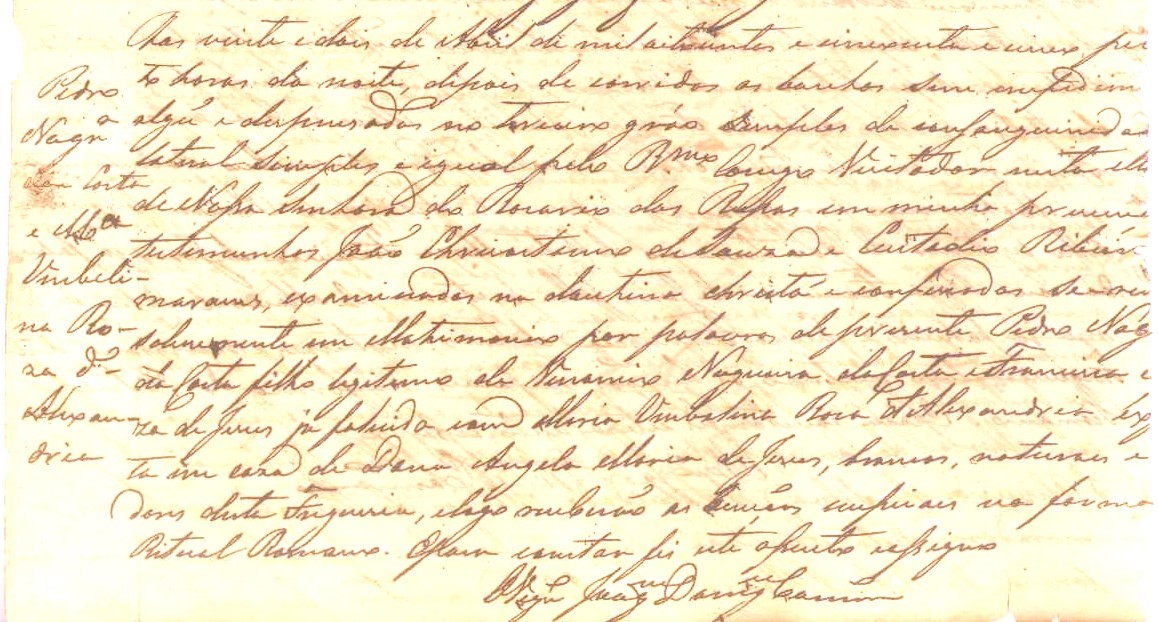 Pedro
Nogr.a
da Costa
e M.a
Umbeli-
na Ro-
za d'
Alexan-
dria
Aos vinte e dois de Abril de mil oitocentos e cincoenta e cinco pe
horas da noite, depois de corridos os banhos sem impedim
algũ e dispensados no terceiro gráo simples de consanguinidad
lateral simples e igual pelo R.mo Conego Vizitador nesta
de Nossa Senhora do Rozario das Russas em minha prezenc
testimunhas João Chrisostomo de Souza e Custodio Ribeir
maraens, examinados na doutrina christã e confessados
solenemente em Matrimonio por palavras de prezente Pedro Nog
da Costa filho legitimo de Venancio Nogueira da Costa e Francisca
za de Jesus já falecida com Maria Umbelina Roza d'Alexandria ex
ta em caza de Dona Angela Maria de Jesus, brancos, naturaes e
dores desta Freguezia, e logo receberão as bençãos nupciaes na forma
Ritual Romano. E para constar fiz este assento e assigno
O Vig.o Joaq.m Doming.es Carneiro